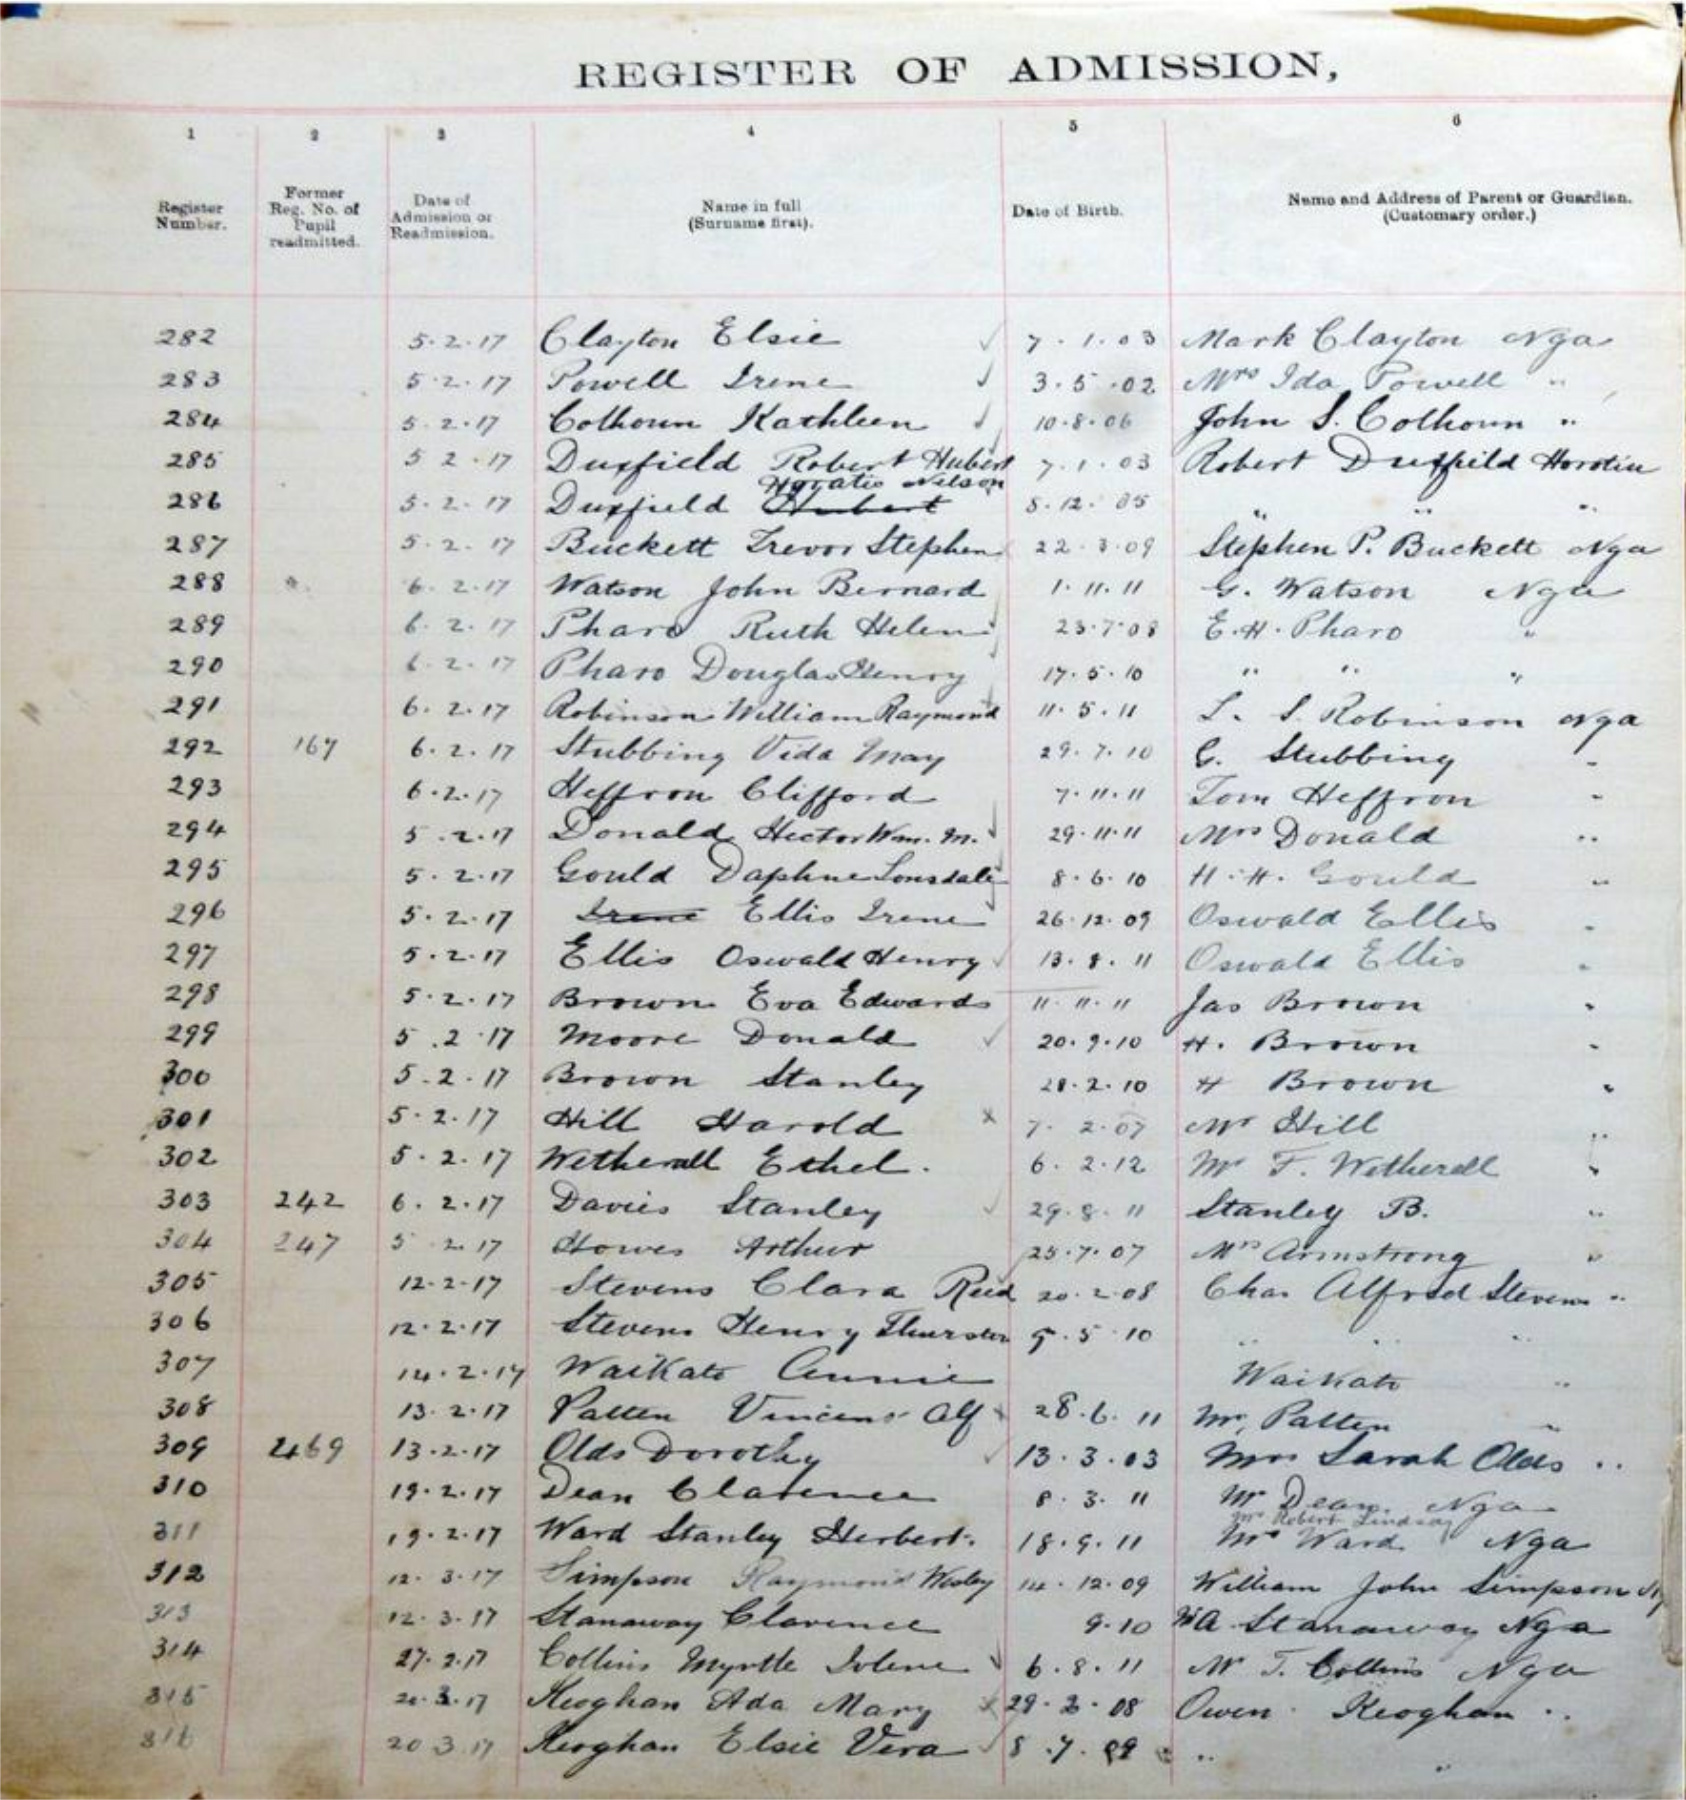 REGISTER OF ADMISSION,
1 2 3 4 5 6
Register Number. Former Reg. No. of Pupil readmitted. Date of Admission or Readmission. Name in full (Surname first). Date of Birth. Name and Address of Parent or Guardian. (Customary order.)
282 5.2.17 Clayton Elsie ✓ 7.1.03 Mark Clayton Nga
283 5.2.17 Powell Irene ✓ 3.5.02 Mrs Ida Powell "
284 5.2.17 Colhoun Kathleen ✓ 10.8.06 John S. Colhoun "
285 5 2.17 Duxfield Robert Hubert 7.1.03 Robert Duxfield Horotiu
Horatio Nelson
286 5.2.17 Duxfield Hubert 5.12.05 " " "
287 5.2.17 Buckett Trevor Stephen 22.3.09 Stephen P. Buckett Nga
288 6.2.17 Watson John Bernard 1.11.11 G. Watson Nga
289 6.2.17 Pharo Ruth Helen 23.7.08 E.H. Pharo "
290 6.2.17 Pharo Douglas Henry 17.5.10 " " "
291 6.2.17 Robinson William Raymond 11.5.11 L. S. Robinson Nga
292 167 6.2.17 Stubbing Vida May 29.7.10 G. Stubbing "
293 6.2.17 Heffron Clifford 7.11.11 Tom Heffron "
294 5.2.17 Donald Hector Wm. M. 29.11.11 Mrs Donald "
295 5.2.17 Gould Daphne Lonsdale 8.6.10 H.H. Gould "
296 5.2.17 Irene Ellis Irene 26.12.09 Oswald Ellis "
297 5.2.17 Ellis Oswald Henry ✓ 13.8.11 Oswald Ellis "
298 5.2.17 Brown Eva Edwards 11.11.11 Jas Brown "
299 5.2.17 Moore Donald ✓ 20.9.10 H. Brown "
300 5.2.17 Brown Stanley 28.2.10 H Brown "
301 5.2.17 Hill Harold x 7.2.07 Mr Hill "
302 5.2.17 Wetherall Ethel. 6.2.12 Mr F. Wetherall "
303 242 6.2.17 Davies Stanley ✓ 29.8.11 Stanley B. "
304 247 5 2.17 Howes Arthur 25.7.07 Mrs Armstrong "
305 12.2.17 Stevens Clara Reid 20.2.08 Chas Alfred Stevens "
306 12.2.17 Stevens Henry Thurston 9.5.10 " " "
307 14.2.17 Waikato Annie Waikato "
308 13.2.17 Patten Vincent Alf 28.6.11 Mr, Patten "
309 2469 13.2.17 Olds Dorothy ✓ 13.3.03 Mrs Sarah Olds "
310 19.2.17 Dean Clarence 8.3.11 Mr Dean. Nga
Mr Robert Lindsay
311 19.2.17 Ward Stanley Herbert. 18.9.11 Mrs Ward Nga
312 12.3.17 Simpson Raymond Wesley 14.12.09 William John Simpson
313 12.3.17 Stanaway Clarence 9.10 Stanaway Nga
314 27.2.17 Collins Myrtle 6.8.11 Mr T. Collins Nga
315 20.3.17 Keoghan Ada Mary x 29.3.08 Owen Keoghan "
316 20 3.17 Keoghan Elsie Vera ✓ 8.7. " "